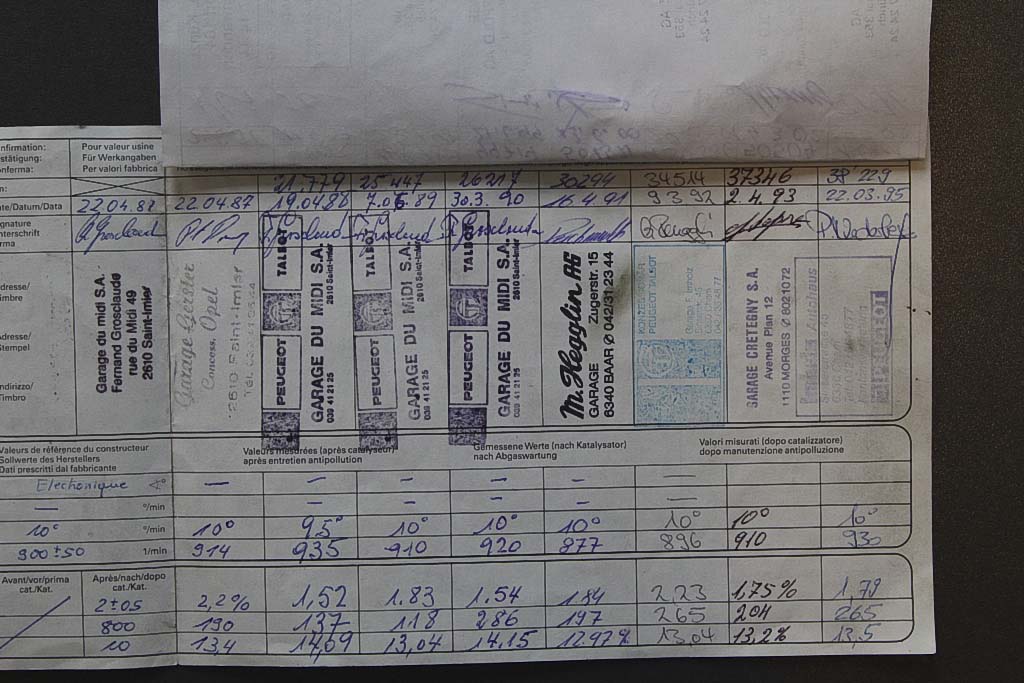 nfirmation: Pour valeur usine
stätigung: Für Werkangaben
onferma: Per valori fabbrica
m: 21.779 25 447 26217 30294 34514 37346 38 229
te/Datum/Data 22.04.87 22.04.87 19.04.88 7.06.89 30.3. 90 15 4 91 9 3 92 2.4.93 22.03.95
gnature
nterschrift
rma
dresse/
imbre
dresse/
Stempel
ndirizzo/
Timbro
Garage du midi S.A.
Fernand Grosclaude
rue du Midi 49
2610 Saint-Imier
Garage Gerster
Concess. Opel
2610 Saint-Imier
PEUGEOT TALBOT
GARAGE DU MIDI S.A.
039 41 21 25 2610 Saint-Imier
PEUGEOT TALBOT
GARAGE DU MIDI S.A.
039 41 21 25 2610 Saint-Imier
PEUGEOT TALBOT
GARAGE DU MIDI S.A.
039 41 21 25 2610 Saint-Imier
M. Hegglin AG
GARAGE Zugerstr. 15
6340 BAAR Ø 042/31 23 44
PEUGEOT TALBOT
GARAGE CRETEGNY S.A.
Avenue Plan 12
1110 MORGES Ø 8021072
Autohaus
Valeurs de référence du constructeur
Sollwerte des Herstellers
Dati prescritti dal fabbricante
Valeurs mesurées (après catalyseur)
après entretien antipollution
Gemessene Werte (nach Katalysator)
nach Abgaswartung
Valori misurati (dopo catalizzatore)
dopo manutenzione antipolluzione
Electronique — — — — — — — —
— °/min — — — — —
10° °/min 10° 9,5° 10° 10° 10° 10° 10° 10°
900 ± 50 1/min 914 935 910 920 877 896 910 930
Avant/vor/prima
cat./Kat.
Après/nach/dopo
cat./Kat.
2±05 2,2% 1,52 1.83 1.54 1.84 2.23 1,75% 1,79
800 190 137 118 286 197 265 204 265
10 13,4 14,69 13,04 14,15 12.97% 13,04 13,2% 13,5